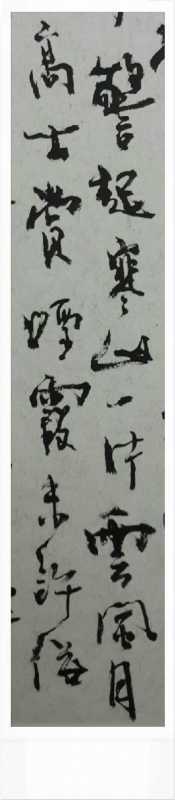 警起寒山一片雲風月
高士賞煙霞未許俗